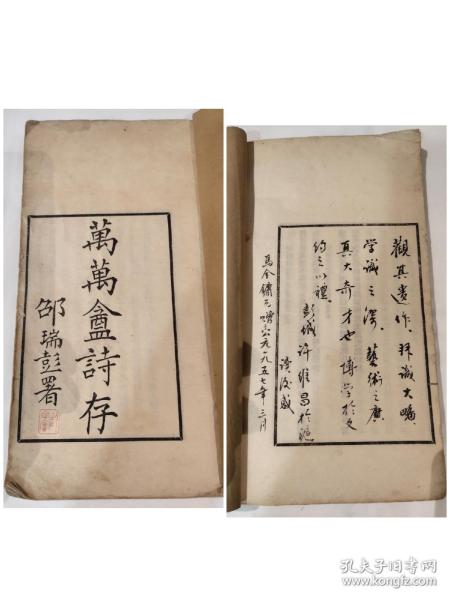 萬萬盦詩存
邵瑞彭署
觀其遺作拜識大鳴
學識之深藝術之廣
真大奇才也博學於文
約之以禮
彭城許維昌於滬
讀後感
馬公鏽元贈公元一九五七年三月
孔夫子旧书网
www.kongfz.com